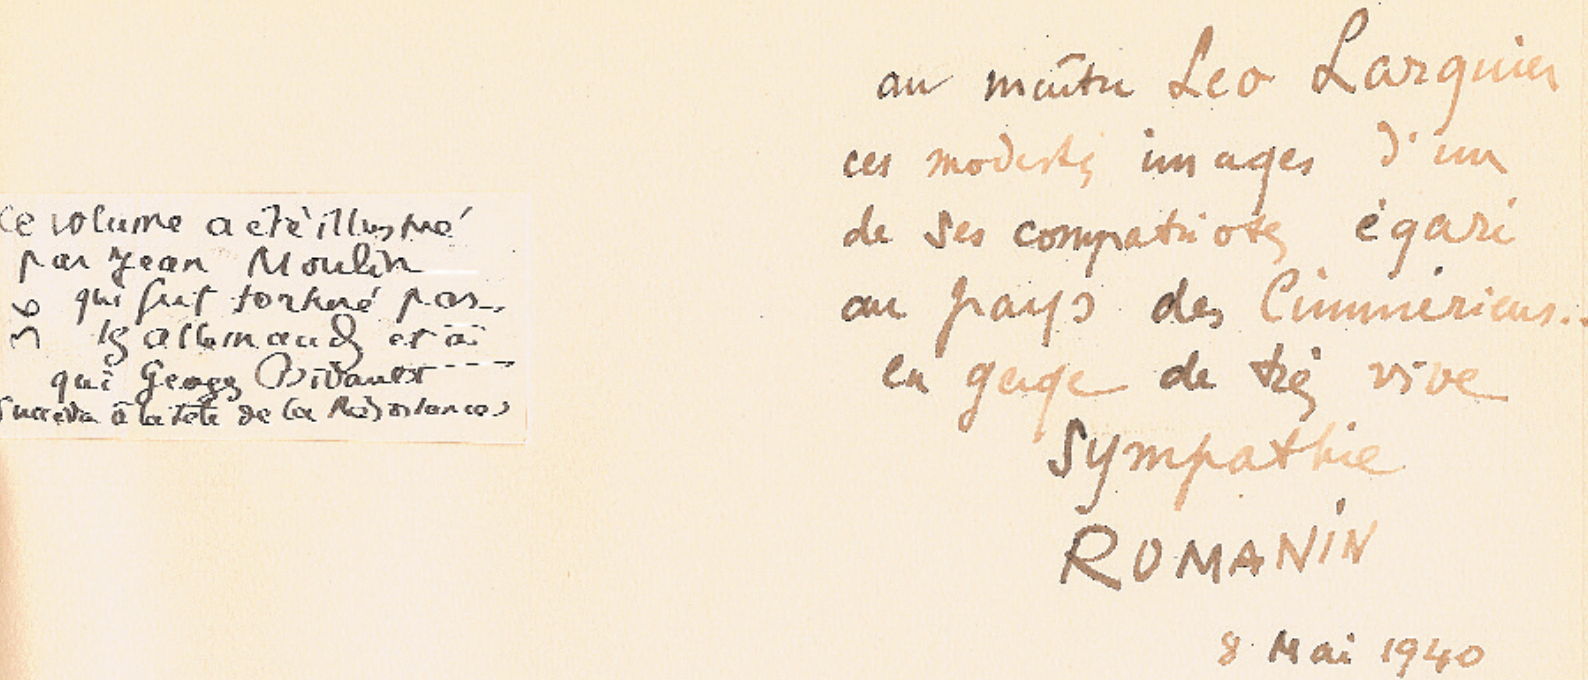 Ce volume a été illustré
par Jean Moulin
qui fut torturé par
les allemands et à
qui Georges Bidault
succéda à la tête de la Résistance
36
au maître Leo Larguier
ces modestes images d'un
de ses compatriotes égaré
au pays des Cimmériens..
en gage de très vive
Sympathie
ROMANIN
8 Mai 1940